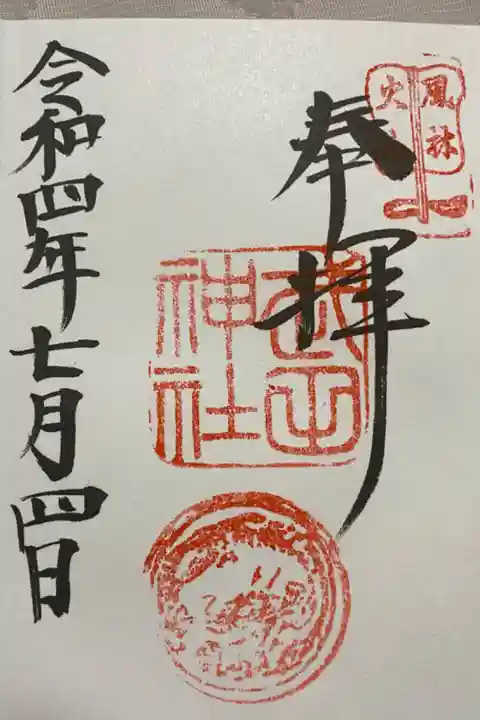 風林
火山
奉拝
武田
神社
令和四年七月四日